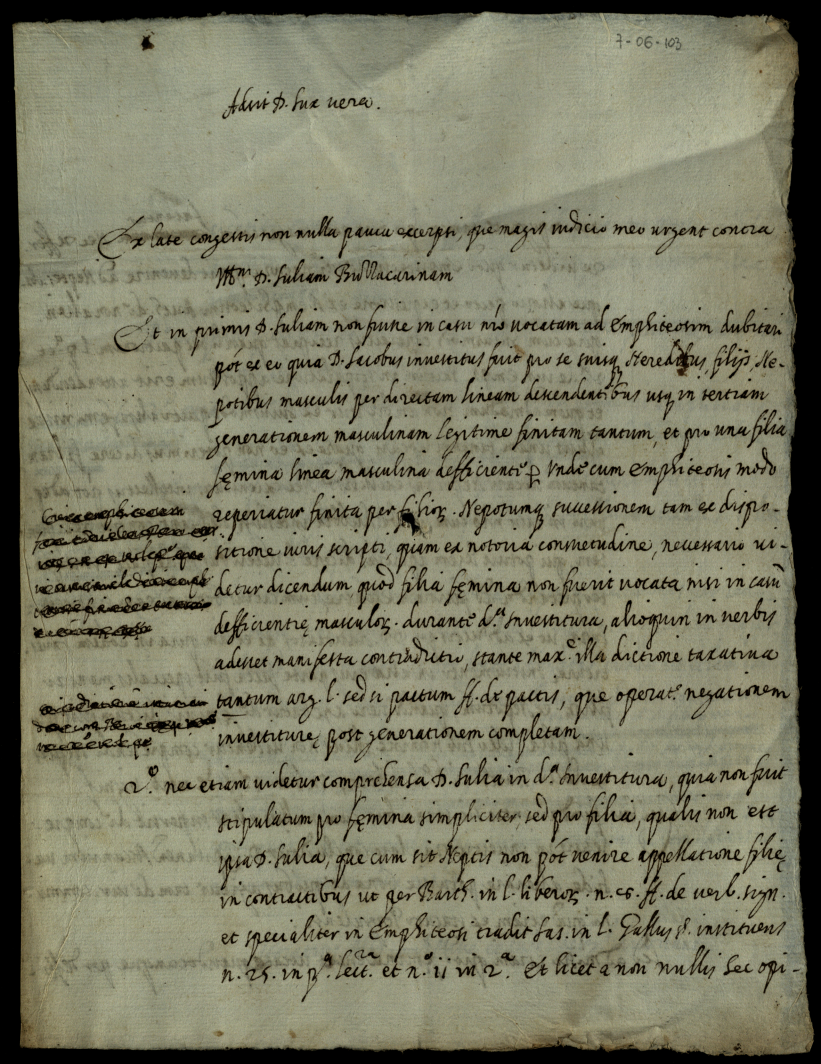 7-06-103
Adsit D. Lux vera.
Ex late congestis non nulla pauca excerpsi, que magis iudicio meo urgent contra
D. Iuliam
Et in primis D. Iuliam non fuisse in casu nřo vocatam ad Emphiteosim dubitari
põt ex eo quia D. Iacobus investitus fuit pro se suisq; Heredibus, filijs, Ne-
potibus masculis per directam lineam descendentibus usq; in tertiam
generationem masculinam legitime finitam tantum, et pro una filia
fęmina linea masculina defficiente p̱ Unde cum Emphiteosis modo
reperiatur finita per filioꝝ. Nepotumq; successionem tam ex dispo-
sitione iuris scripti, quam ex notoria consuetudine, necessario vi-
detur dicendum quod filia fęmina non fuerit vocata nisi in casũ
defficientię masculoꝝ. durante d.ª Investitura, alioquin in verbis
adesset manifesta contradictio, stante max.e illa dictione taxativa
tantum arg. l. sed si pactum ff. de pactis, que operat.r negationem
investiturę post generationem completam.
2.º nec etiam videtur comprehensa D. Iulia in d.ª Investitura, quia non fuit
stipulatum pro fęmina simpliciter sed pro filia, qualis non est
ipsa D. Iulia, que cum sit Neptis non põt venire appellatione filię
in contractibus ut per Barth. in l. liberoꝝ. n. 6. ff. de verb. sign.
et specialiter in Emphiteosi tradit Ias. in l. Gallus §. instituens
n. 25. in p.ª lect.ª et n.º 11 in 2.ª Et licet a non nullis hec opi-